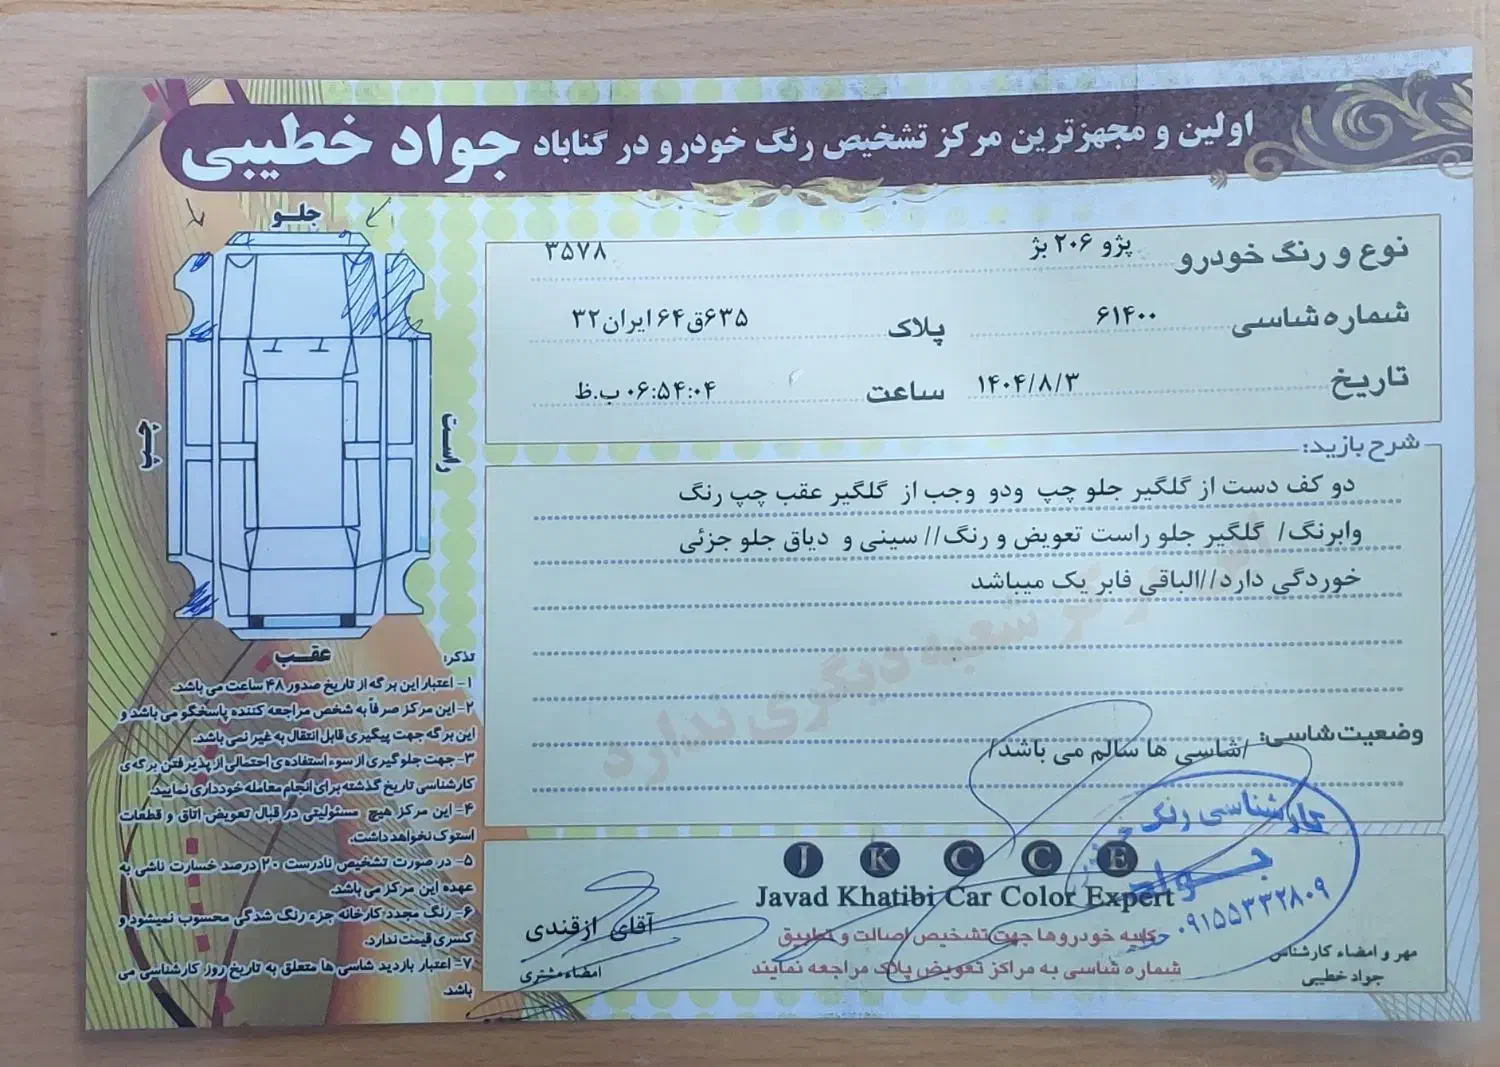 اولین و مجهزترین مرکز تشخیص رنگ خودرو در گناباد جواد خطیبی
جلو
چپ
راست
عقب
نوع و رنگ خودرو پژو ۲۰۶ بژ ۳۵۷۸
شماره شاسی ۶۱۴۰۰ پلاک ۶۳۵ق۶۴ ایران۳۲
تاریخ ۱۴۰۴/۸/۳ ساعت ۰۶:۵۴:۰۴ ب.ظ
شرح بازدید:
دو کف دست از گلگیر جلو چپ ودو وجب از گلگیر عقب چپ رنگ
وابرنگ/ گلگیر جلو راست تعویض و رنگ// سینی و دیاق جلو جزئی
خوردگی دارد//الباقی فابر یک میباشد
شعبه دیگری ندارد
وضعیت شاسی: /شاسی ها سالم می باشد/
تذکر:
۱- اعتبار این برگه از تاریخ صدور ۴۸ ساعت می باشد.
۲- این مرکز صرفاً به شخص مراجعه کننده پاسخگو می باشد و
این برگه جهت پیگیری قابل انتقال به غیر نمی باشد.
۳- جهت جلوگیری از سوء استفاده ی احتمالی از پذیرفتن برگه ی
کارشناسی تاریخ گذشته برای انجام معامله خودداری نمایید.
۴- این مرکز هیچ مسئولیتی در قبال تعویض اتاق و قطعات
استوک نخواهد داشت.
۵- در صورت تشخیص نادرست ۲۰ درصد خسارت ناشی به
عهده این مرکز می باشد.
۶- رنگ مجدد کارخانه جزء رنگ شدگی محسوب نمیشود و
کسری قیمت ندارد.
۷- اعتبار بازدید شاسی ها متعلق به تاریخ روز کارشناسی می
باشد.
J K C C E
Javad Khatibi Car Color Expert
کلیه خودروها جهت تشخیص اصالت و تطبیق
شماره شاسی به مراکز تعویض پلاک مراجعه نمایند
آقای ازقندی
امضاء مشتری
کارشناسی رنگ
جواد
۰۹۱۵۵۳۳۲۸۰۹
مهر و امضاء کارشناس
جواد خطیبی